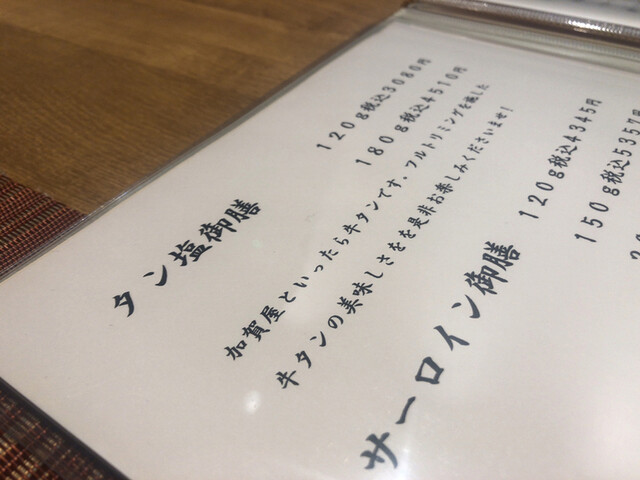 タン塩御膳
120g税込3080円
180g税込4510円
加賀屋といったら牛タンです、フルトリミングを施した
牛タンの美味しさをを是非お楽しみくださいませ!
サーロイン御膳
120g税込4345円
150g税込5357円